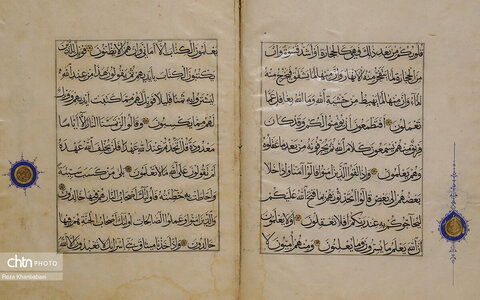 قلوبكم من بعد ذلك فهي كالحجارة او اشد قسوة وان
من الحجارة لما يتفجر منه الانهار وان منها لما يشقق فيخرج منه
الماء وان منها لما يهبط من خشية الله وما الله بغافل عما
تعملون افتطمعون ان يؤمنوا لكم وقد كان
فريق منهم يسمعون كلام الله ثم يحرفونه من بعد ما عقلوه
وهم يعلمون واذا لقوا الذين امنوا قالوا امنا واذا خلا
بعضهم الى بعض قالوا اتحدثونهم بما فتح الله عليكم
ليحاجوكم به عند ربكم افلا تعقلون اولا يعلمون
ان الله يعلم ما يسرون وما يعلنون ومنهم اميون لا
يعلمون الكتاب الا اماني وان هم الا يظنون فويل للذين
يكتبون الكتاب بايديهم ثم يقولون هذا من عند الله
ليشتروا به ثمنا قليلا فويل لهم مما كتبت ايديهم وويل
لهم مما يكسبون وقالوا لن تمسنا النار الا اياما
معدودة قل اتخذتم عند الله عهدا فلن يخلف الله عهده
ام تقولون على الله ما لا تعلمون بلى من كسب سيئة
واحاطت به خطيئته فاولئك اصحاب النار هم فيها خالدون
والذين امنوا وعملوا الصالحات اولئك اصحاب الجنة هم فيها
خالدون واذ اخذنا ميثاق بني اسرائيل لا تعبدون الا الله
chtn PHOTO
Reza Khanbabaei